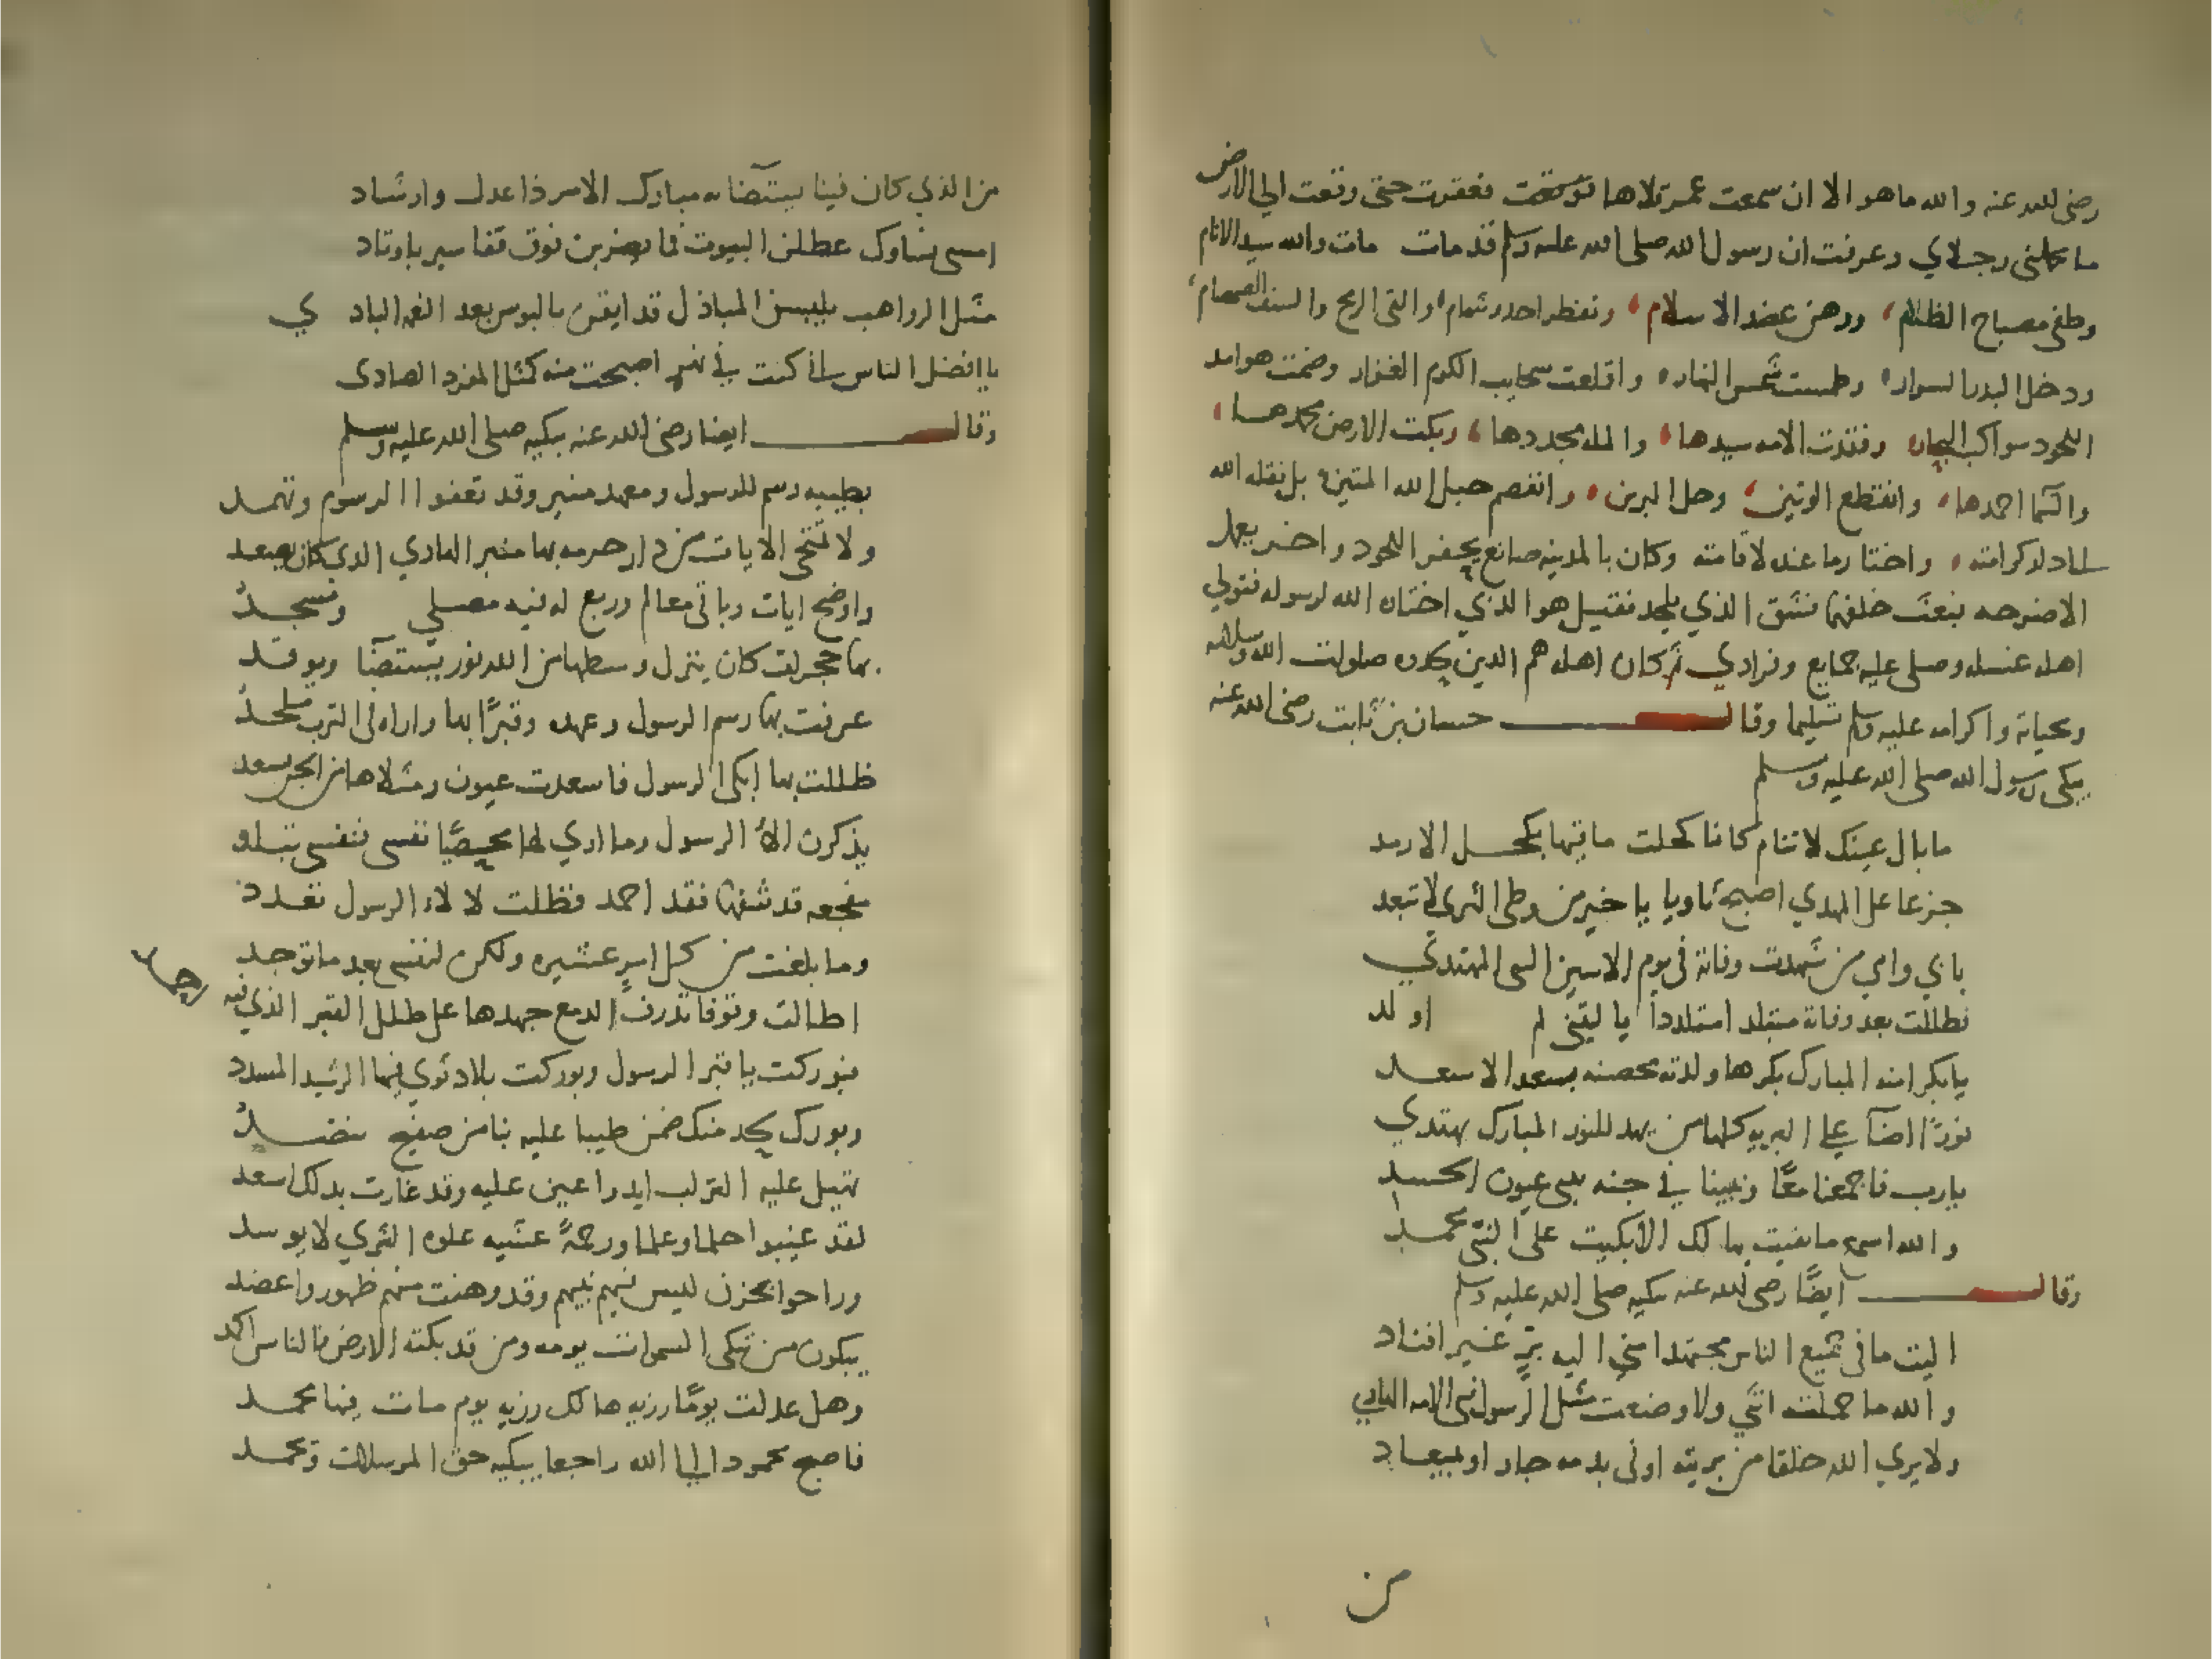 رضي الله عنه والله ما هو الا ان سمعت عمر تلاها فعقرت حتى وقعت الى الارض
ما تحملني رجلاي وعرفت ان رسول الله صلى الله عليه وسلم قد مات مات والله سيد الانام
وطفي مصباح الظلام ووهن عضد الاسلام وتفطر احد وشمام والقى الرمح والسيف الصمصام
ودخل البدر السرار وطمست شمس النهار واقلعت سحايب الكرم الغزار وضمت هوامد
اللحود سواكب البحار وفقدت الامه سيدها والمله مجددها وبكت الارض محمدها
والسما احمدها وانقطع الوتين وحل البرين وانفصم حبل الله المتين بل نقله الله
لدار كرامته واختار ما عنده لاقامته وكان بالمدينه صانع يحفر اللحود واخر يعمل
الاضرحه فبعث خلفهما فسبق الذي يلحد فقيل هو الذي اختاره الله لرسوله فتولى
اهله غسله وصلى عليه جمايع وفرادي ثم كان اهله هم الذين صلوات الله وسلامه
وتحياته واكرامه عليه وسلم تسليما وقال حسان بن ثابت رضي الله عنه
يبكي رسول الله صلى الله عليه وسلم
ما بال عينك لا تنام كانما كحلت ماقيها بكحل الارمد
جزعا على المهدي اصبح ثاويا يا خير من وطي الثري لا تبعد
بابي وامي من شهدت وفاته في يوم الاثنين النبي المهتدي
فظللت بعد وفاته متبلدا متلددا يا ليتني لم اولد
يا بكر امنه المبارك بكرها ولدته محصنه بسعد الاسعد
نورًا اضآ على البريه كلها من يهد للنور المبارك يهتدي
يارب فاجمعنا معًا ونبينا في جنه عيون الحسد
والله اسمع ما بقيت بهالك الا بكيت على النبي محمد
وقال ايضًا رضي الله عنه يبكيه صلى الله عليه وسلم
اليت ما في جميع الناس مجتهدا مني اليه برٍ غير افناد
والله ما حملت انثي ولا وضعت مثل الرسول نبي الامه الهادي
ولا يري الله خلقا من بريته اوفى بذمه جار او بميعاد
من
من الذي كان فينا يستضآ به مبارك الامر ذا عدل وارشاد
امسى نساوك عطلن البيوت فما يضربن فوق قفا ستر باوتاد
مثل الرواهب يلبسن المباذل قد ايقن بالبوس بعد النعمه البادي
يا افضل الناس اني كنت في نهرٍ اصبحت منه كمثل المفرد الصادى
وقال ايضا رضي الله عنه يبكيه صلى الله عليه وسلم
بطيبه رسم للرسول ومعهد منير وقد تعفوا الرسوم وتهمد
ولا تمتحى الايات من دار حرمه بها منبر الهادي الذي كان يصعد
واوضح ايات وباقي معالم وربع له فيه مصلي ومسجدُ
بها حجرات كان ينزل وسطها من الله نور يستضآ ويوقد
عرفت بها رسم الرسول وعهده وقبرًا بها واراه في الترب ملحدُ
ظللت بها ابكي الرسول فاسعدت عيون ومثلاها من الجن تسعد
يذكرن الاء الرسول وما اري لها محصيًا نفسى فنفسى تبلد
مفجعه قد شفها فقد احمد فظلت لالاء الرسول تعدد
وما بلغت من كل امرٍ عشيره ولكن لنفسى بعد ما توجد
اطالت وقوفا تذرف الدمع جهدها على طلل القبر الذي فيه احمد
فبوركت يا قبر الرسول وبوركت بلاد ثوي فيها الرشيد المسدد
وبورك لحد منك ضمن طيبا عليه بنا من صفيح منضدُ
تهيل عليه الترب ايد واعين عليه وقد غارت بذلك اسعد
لقد غيبوا حلما وعلما ورحمةً عشيه علوه الثري لا يوسد
وراحوا بحزن ليس فيهم نبيهم وقد وهنت منهم ظهور واعضد
يبكون من تبكى السموات يومه ومن قد بكته الارض فالناس اكمد
وهل عدلت يومًا رزيه هالك رزيه يوم مات فيها محمد
فاصبح محمودا الي الله راجعا يبكيه حق المرسلات وتحمد